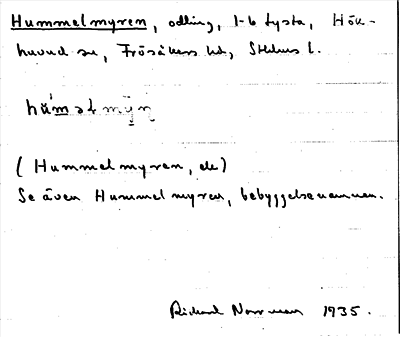 Hummelmyren, odling, 1-6 Tysta, Hök-
huvud sn, Frösåkers hd, Sthlms l.
(Hummelmyren, de)
Se även Hummelmyren, bebyggelsenamnen.
Richard Norrman 1935.